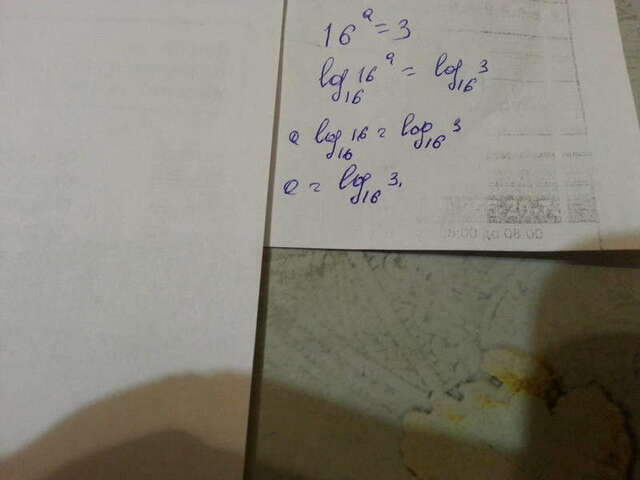 16^a = 3
log₁₆ 16^a = log₁₆ 3
a log₁₆ 16 = log₁₆ 3
a = log₁₆ 3.
:00 до 08:00